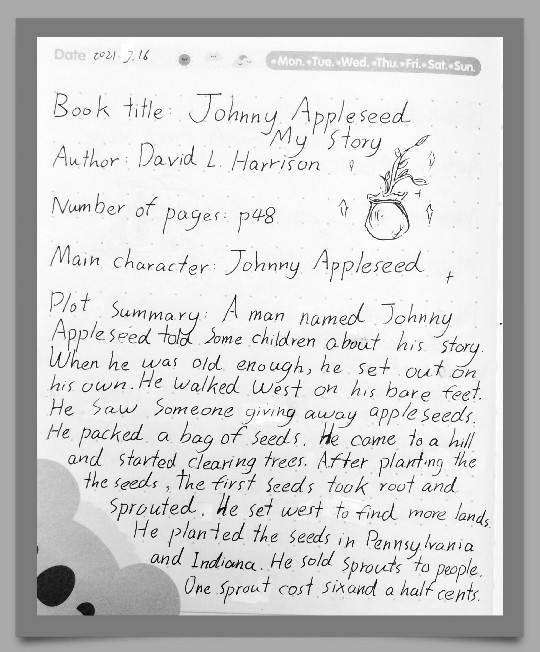 Date 2021. 7. 16
Mon. Tue. Wed. Thu. Fri. Sat. Sun.
Book title: Johnny Appleseed
My Story
Author: David L. Harrison
Number of pages: p48
Main character: Johnny Appleseed
Plot summary: A man named Johnny
Appleseed told some children about his story.
When he was old enough, he set out on
his own. He walked west on his bare feet.
He saw someone giving away appleseeds.
He packed a bag of seeds. He came to a hill
and started clearing trees. After planting the
the seeds, the first seeds took root and
sprouted. He set west to find more lands.
He planted the seeds in Pennsylvania
and Indiana. He sold sprouts to people.
One sprout cost six and a half cents.